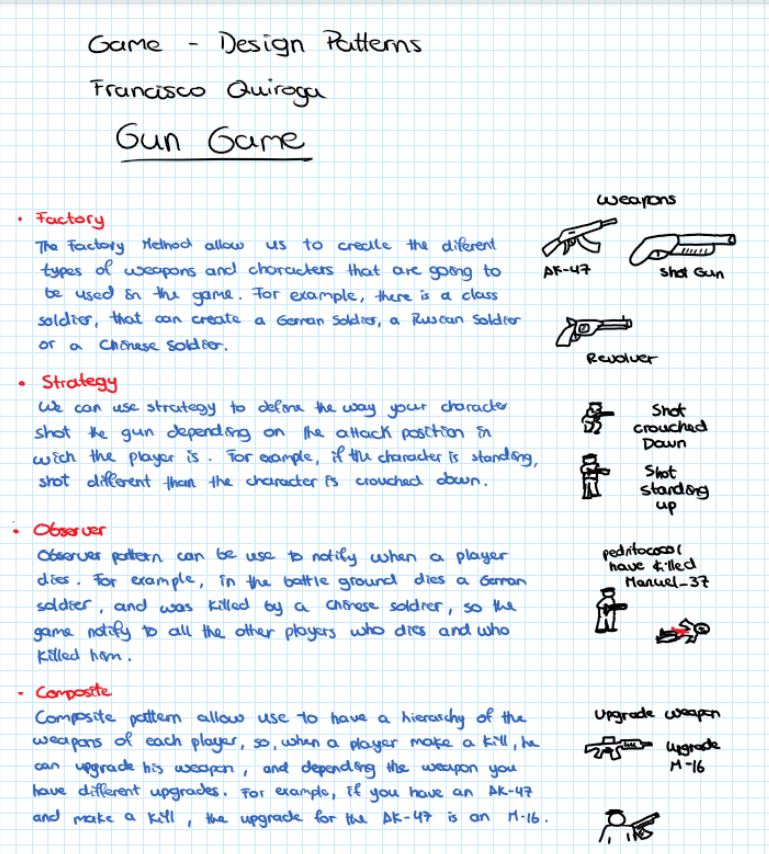 Game - Design Patterns
Francisco Quiroga
Gun Game
• Factory
The Factory Method allow us to create the diferent
types of weapons and characters that are going to
be used in the game. For example, there is a class
soldier, that can create a German Soldier, a Rusean Soldier
or a Chinese Soldier.
weapons
AK-47
Shot Gun
Revolver
• Strategy
We can use strategy to define the way your character
shot the gun depending on the attack position in
wich the player is. For example, if the character is standing,
shot different than the character is crouched down.
Shot
crouched
Down
Shot
standing
up
• Observer
Observer pattern can be use to notify when a player
dies. For example, in the battle ground dies a German
soldier, and was killed by a chinese soldier, so the
game notify to all the other players who dies and who
killed him.
have killed
Manuel-37
• Composite
Composite pattern allow use to have a hierarchy of the
weapons of each player, so, when a player make a kill, he
can upgrade his weapon, and depending the weapon you
have different upgrades. For example, if you have an AK-47
and make a kill, the upgrade for the AK-47 is an M-16.
Upgrade weapon
Upgrade
M-16